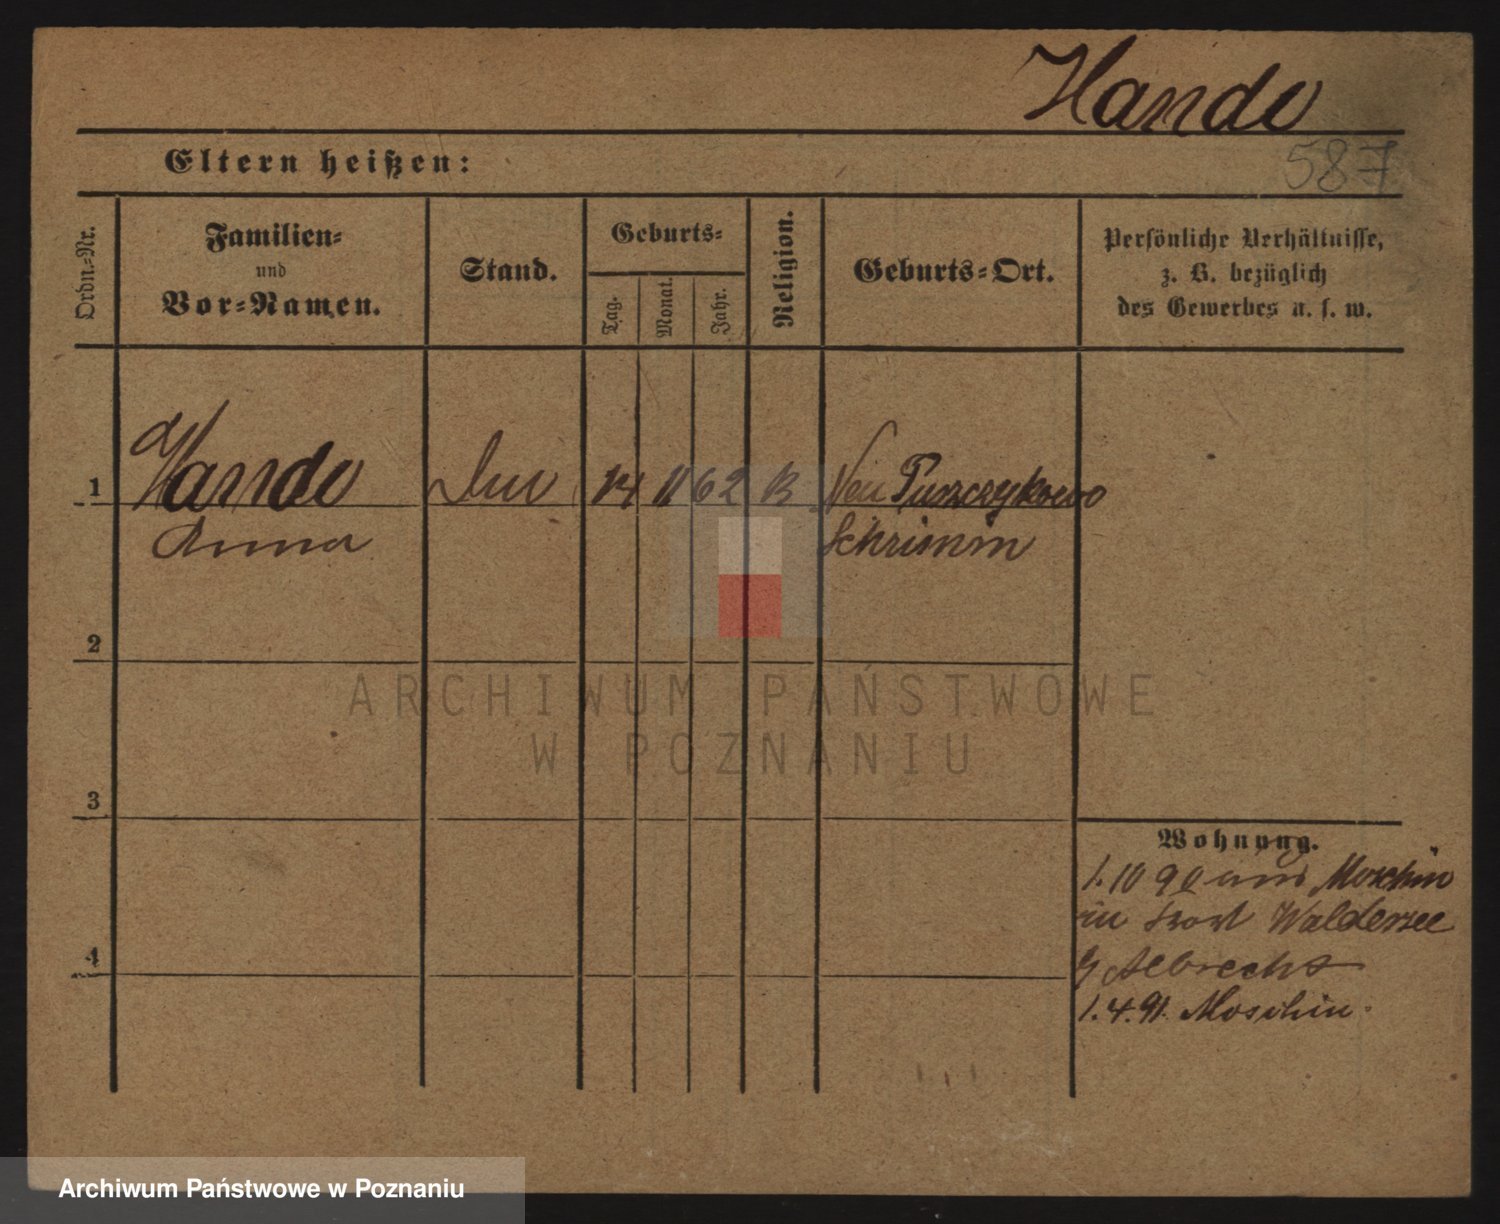 Hando
Eltern heißen:
587
Ordn.-Nr.
Familien-
und
Vor-Namen.
Stand.
Geburts-
Tag.
Monat.
Jahr.
Religion.
Geburts-Ort.
Persönliche Verhältnisse,
z. B. bezüglich
des Gewerbes u. s. w.
1
Hando
14 11 62
Neu Puszczykowo
Anna
Schrimm
2
3
4
Wohnung.
1.10 90 aus Moschin
in Fort Waldersee
Albrecht
1.4.91. Moschin.
ARCHIWUM PAŃSTWOWE
W POZNANIU
Archiwum Państwowe w Poznaniu